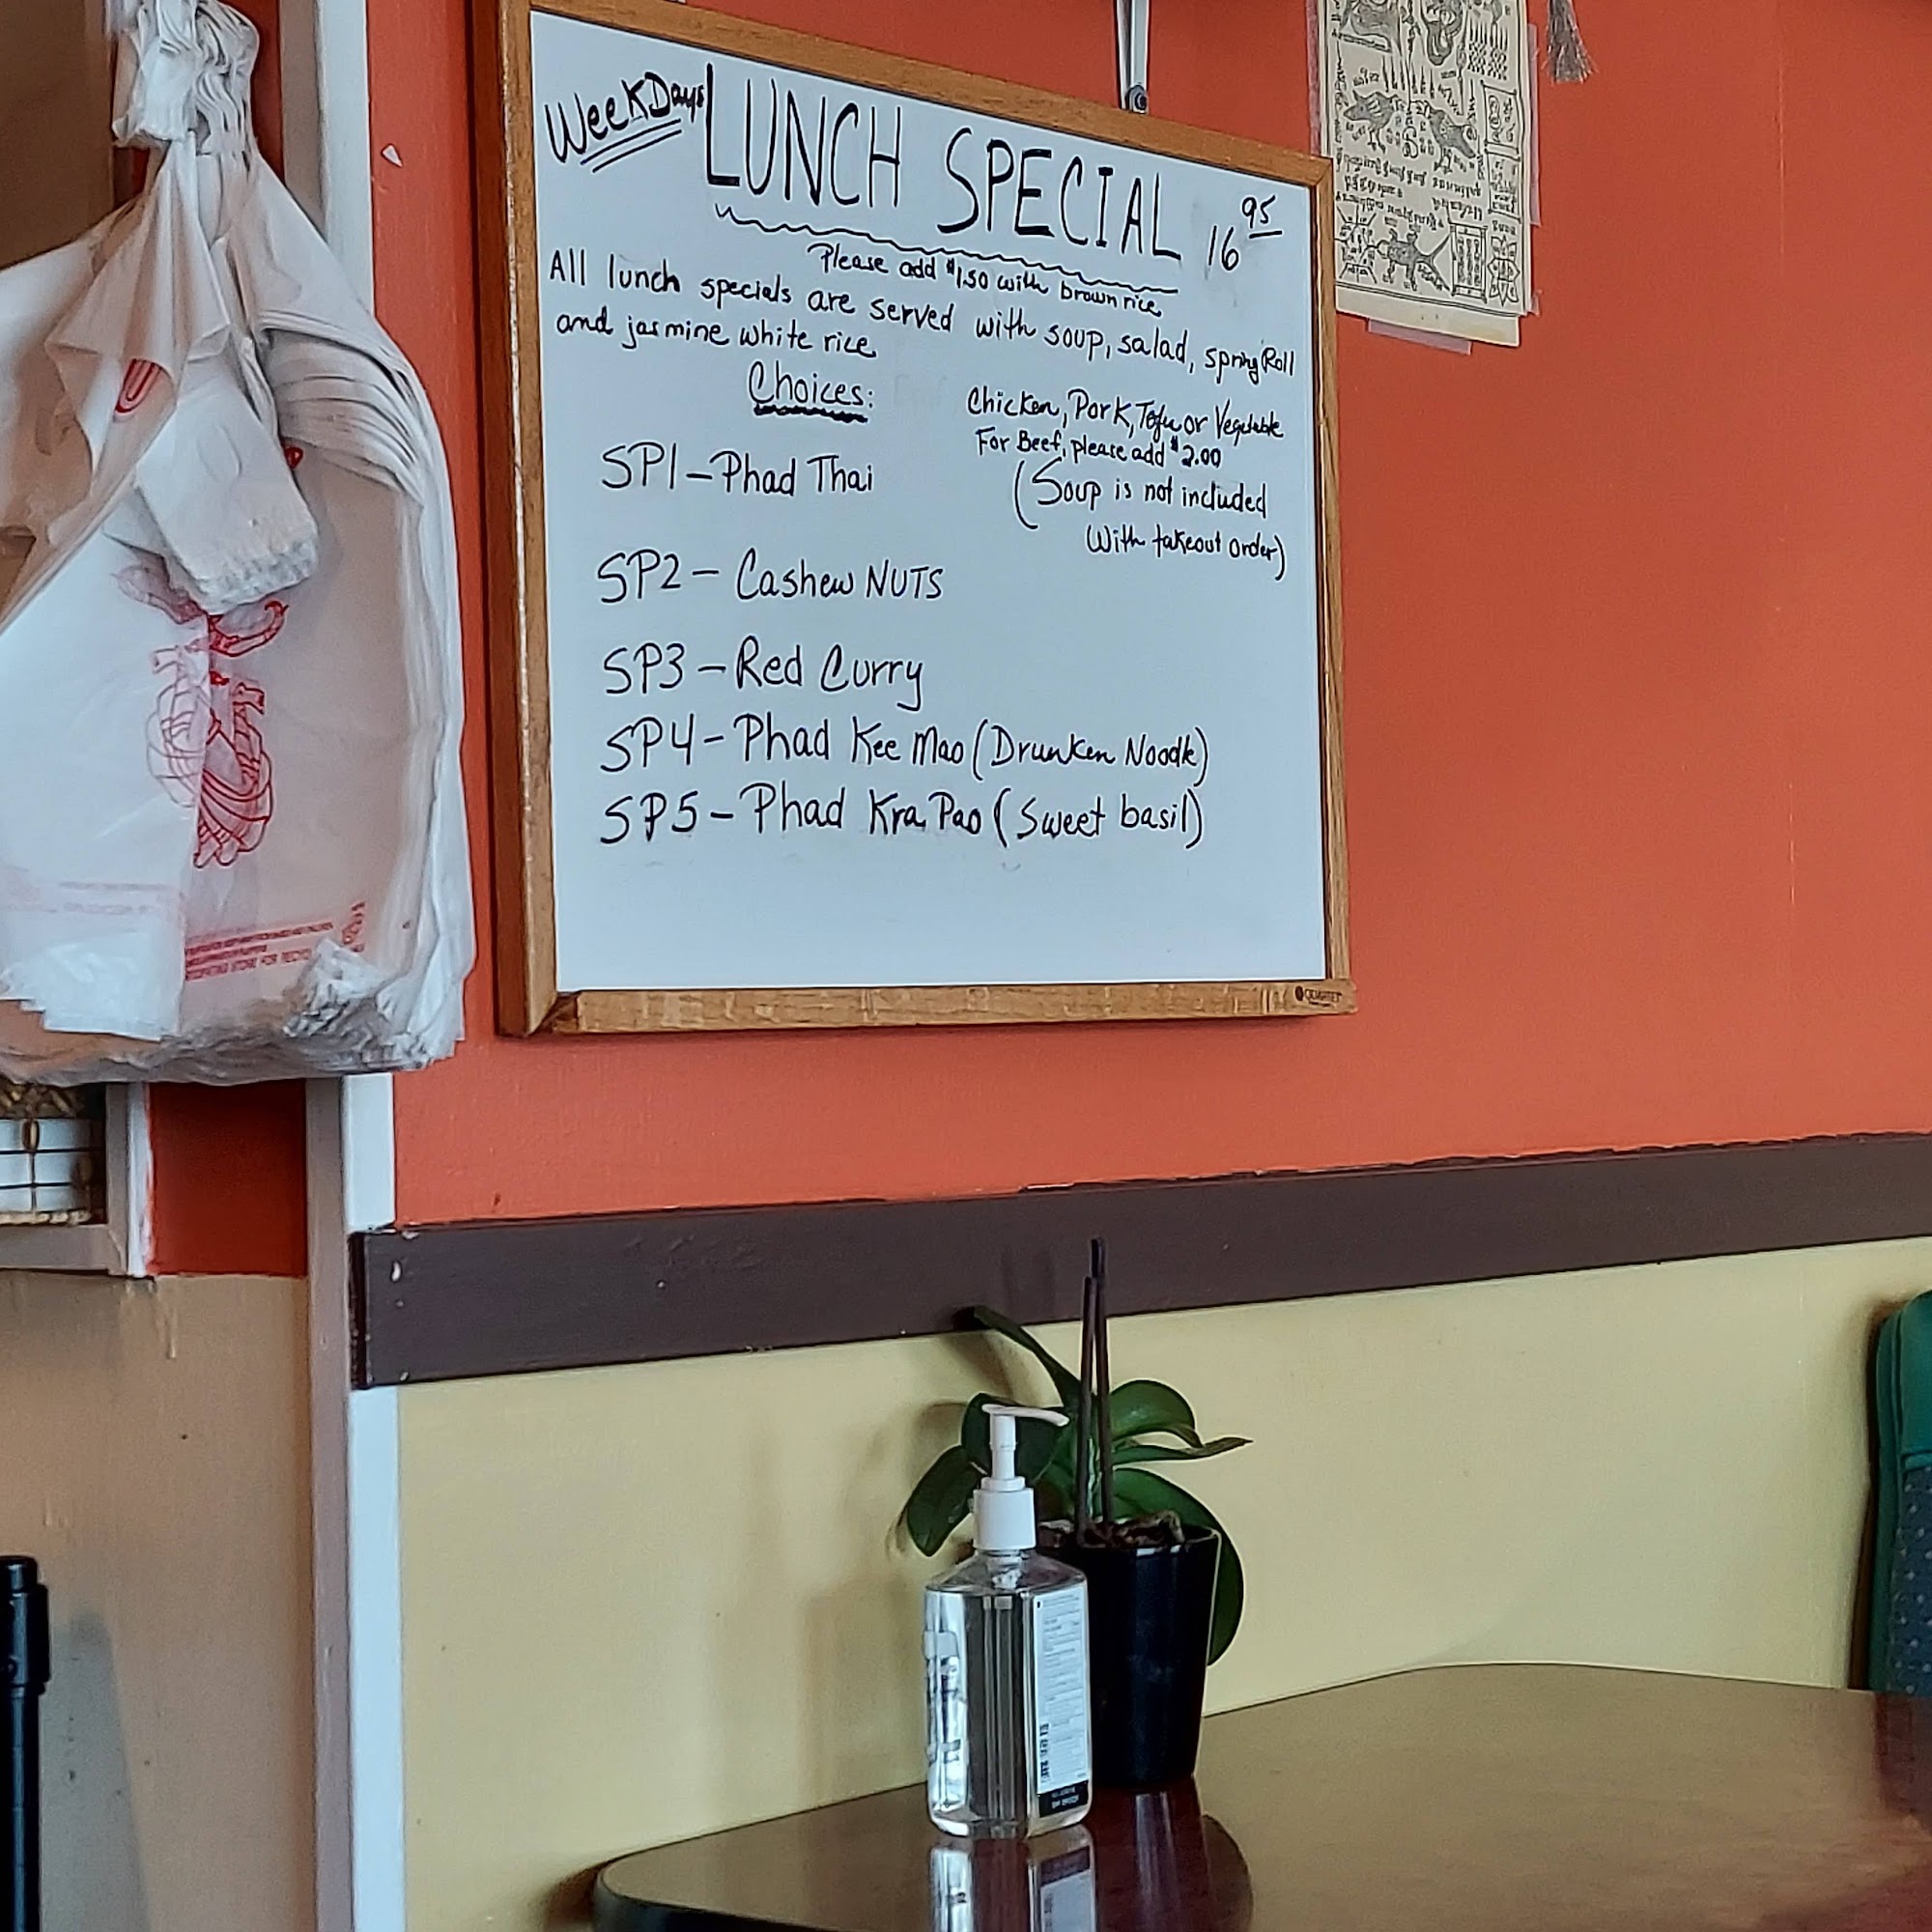 WeekDays LUNCH SPECIAL 16 95
Please add $1.50 with brown rice
All lunch specials are served with soup, salad, spring Roll
and jasmine white rice
Choices:
Chicken, Pork, Tofu or Vegetable
For Beef, please add $2.00
(Soup is not included
With takeout order)
SP1-Phad Thai
SP2- Cashew NUTS
SP3-Red Curry
SP4-Phad Kee Mao (Drunken Noodle)
SP5-Phad Kra Pao (Sweet basil)
QUARTET
STORE FOR